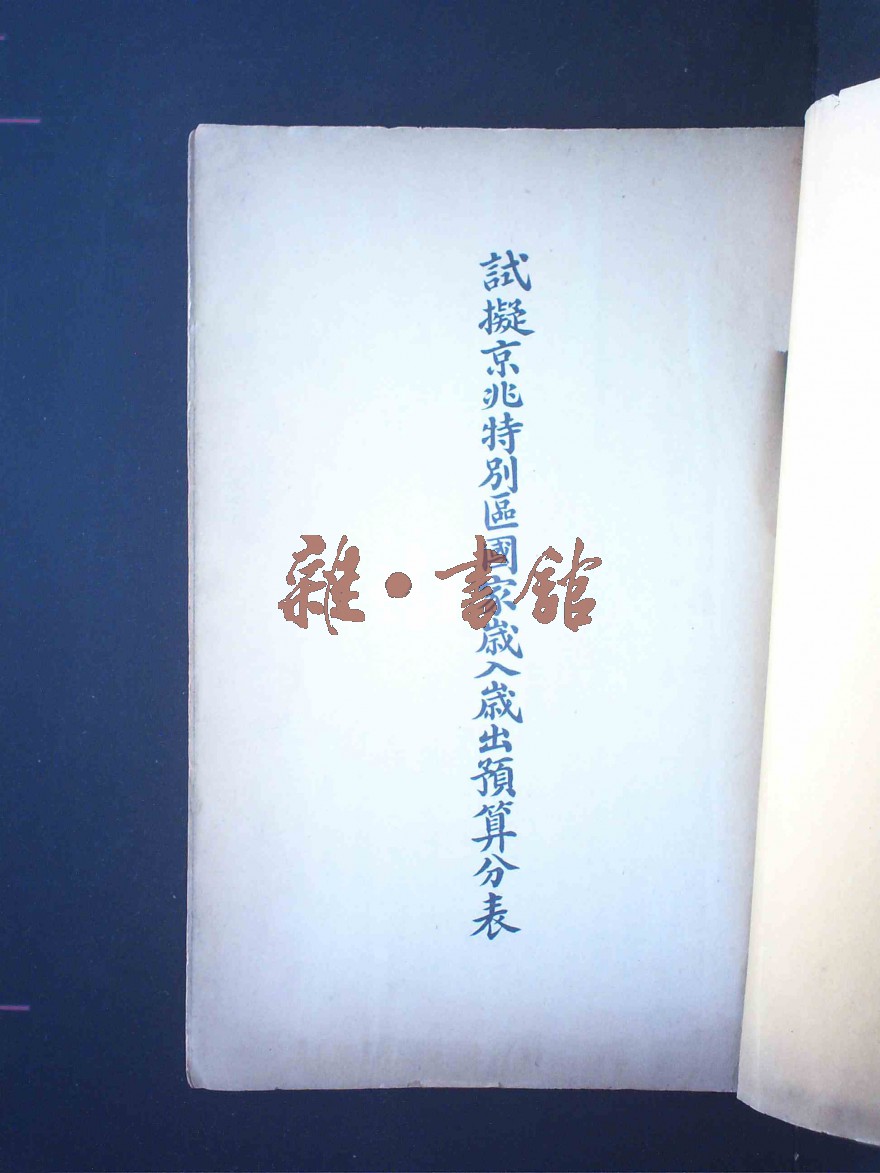 試擬京兆特別區國家歲入歲出預算分表
雜·書館